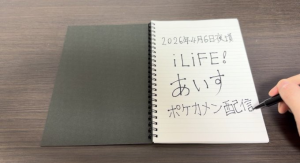 2026年4月6日放課
iLiFE!
あいす
ポケカメン配信